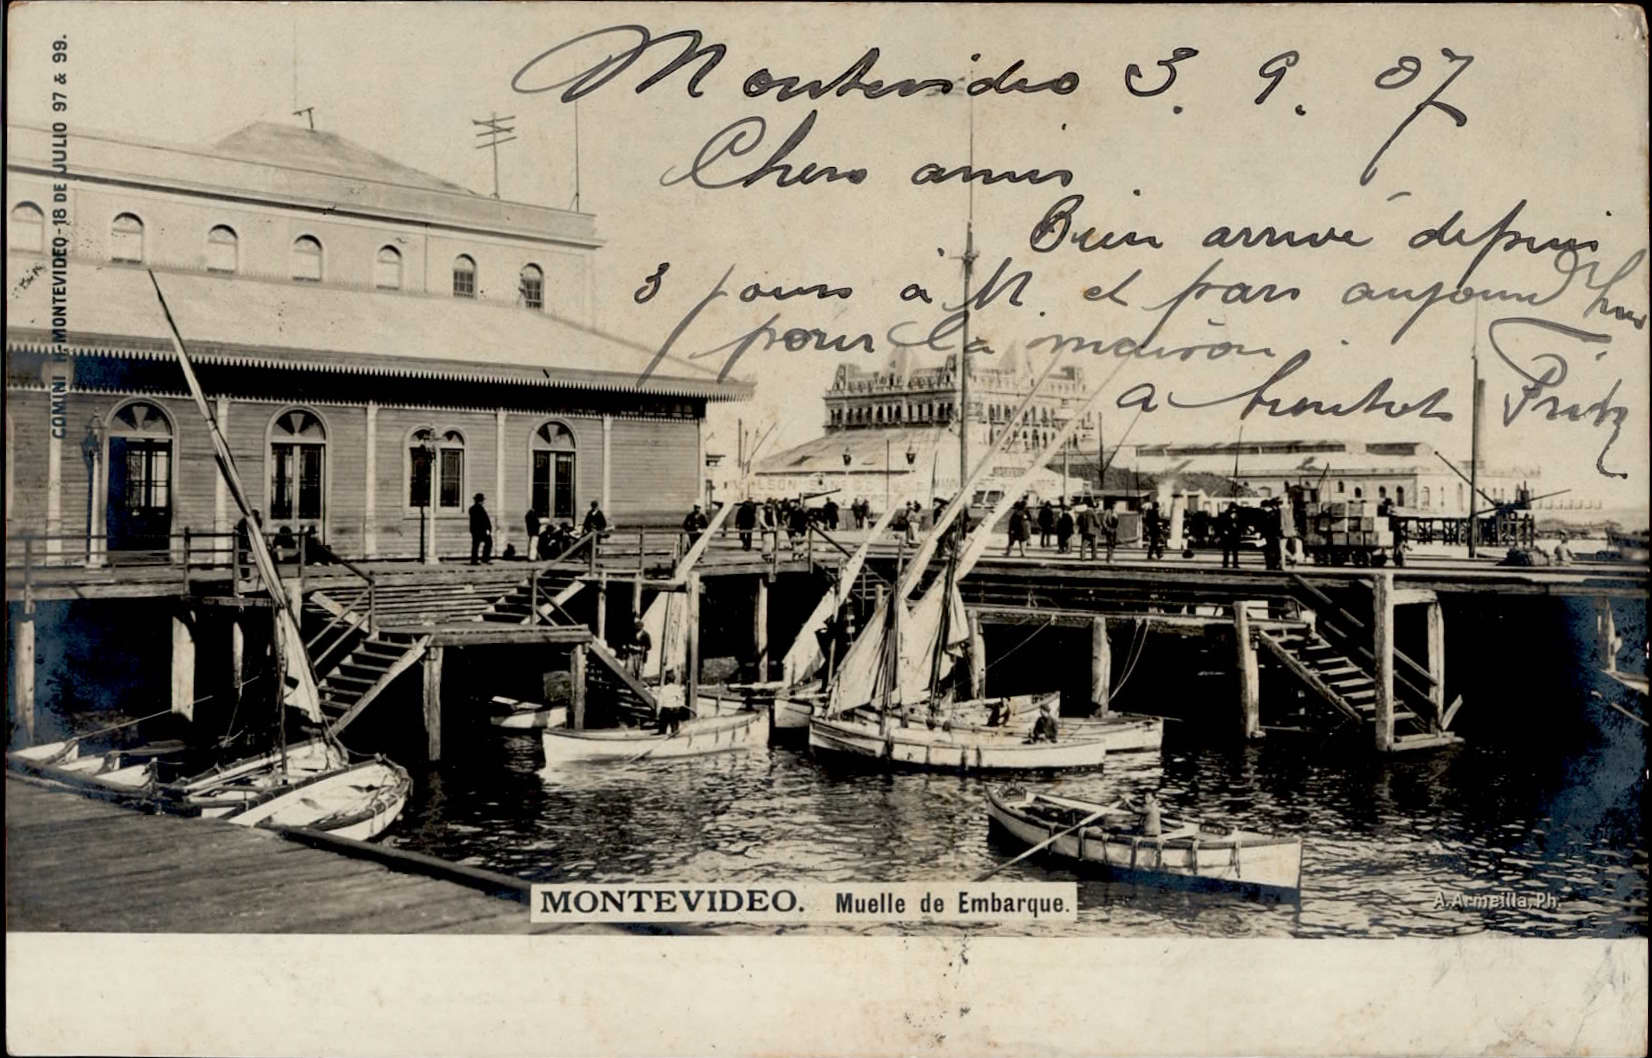 Montevideo 3. 9. 07
Chers amis.
Bien arrivé depuis
3 jours à M. et pars aujourd'hui
pour la maison.
a bientot Fritz
COMINI H.-MONTEVIDEO-18 DE JULIO 97 & 99.
MONTEVIDEO. Muelle de Embarque.
A. Armeilla, Ph.